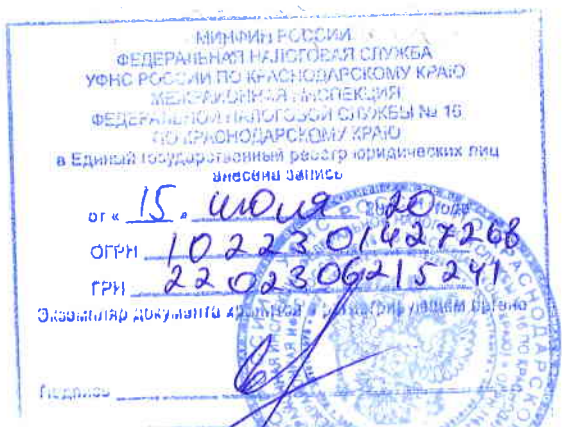 МИНФИН РОССИИ
ФЕДЕРАЛЬНАЯ НАЛОГОВАЯ СЛУЖБА
УФНС РОССИИ ПО КРАСНОДАРСКОМУ КРАЮ
МЕЖРАЙОННАЯ ИНСПЕКЦИЯ
ФЕДЕРАЛЬНОЙ НАЛОГОВОЙ СЛУЖБЫ № 16
ПО КРАСНОДАРСКОМУ КРАЮ
в Единый государственный реестр юридических лиц
внесена запись
от « 15 » июля 2020 года
ОГРН 1022301427268
ГРН 2202306215241
Экземпляр документа хранится в регистрирующем органе
Подпись